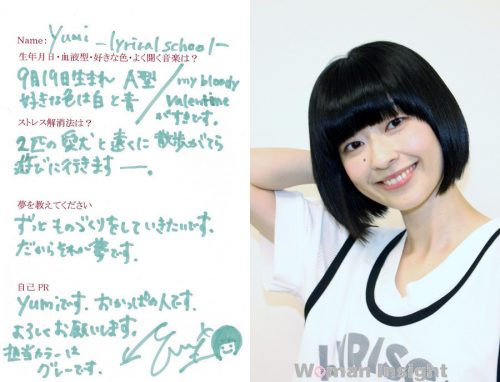 Name: Yumi -lyrical school-
生年月日・血液型・好きな色・よく聞く音楽は?
9月19日生まれ A型
好きな色は白と青
my bloody
valentine
がすきです。
ストレス解消法は?
2匹の愛犬と遠くに散歩がてら
遊びに行きますー。
夢を教えてください
ずっとものづくりをしていきたいです。
だからそれが夢です。
自己PR
Yumiです。おかっぱの人です。
よろしくお願いします。
担当カラーは
グレーです。
LYRISC
Woman Insight